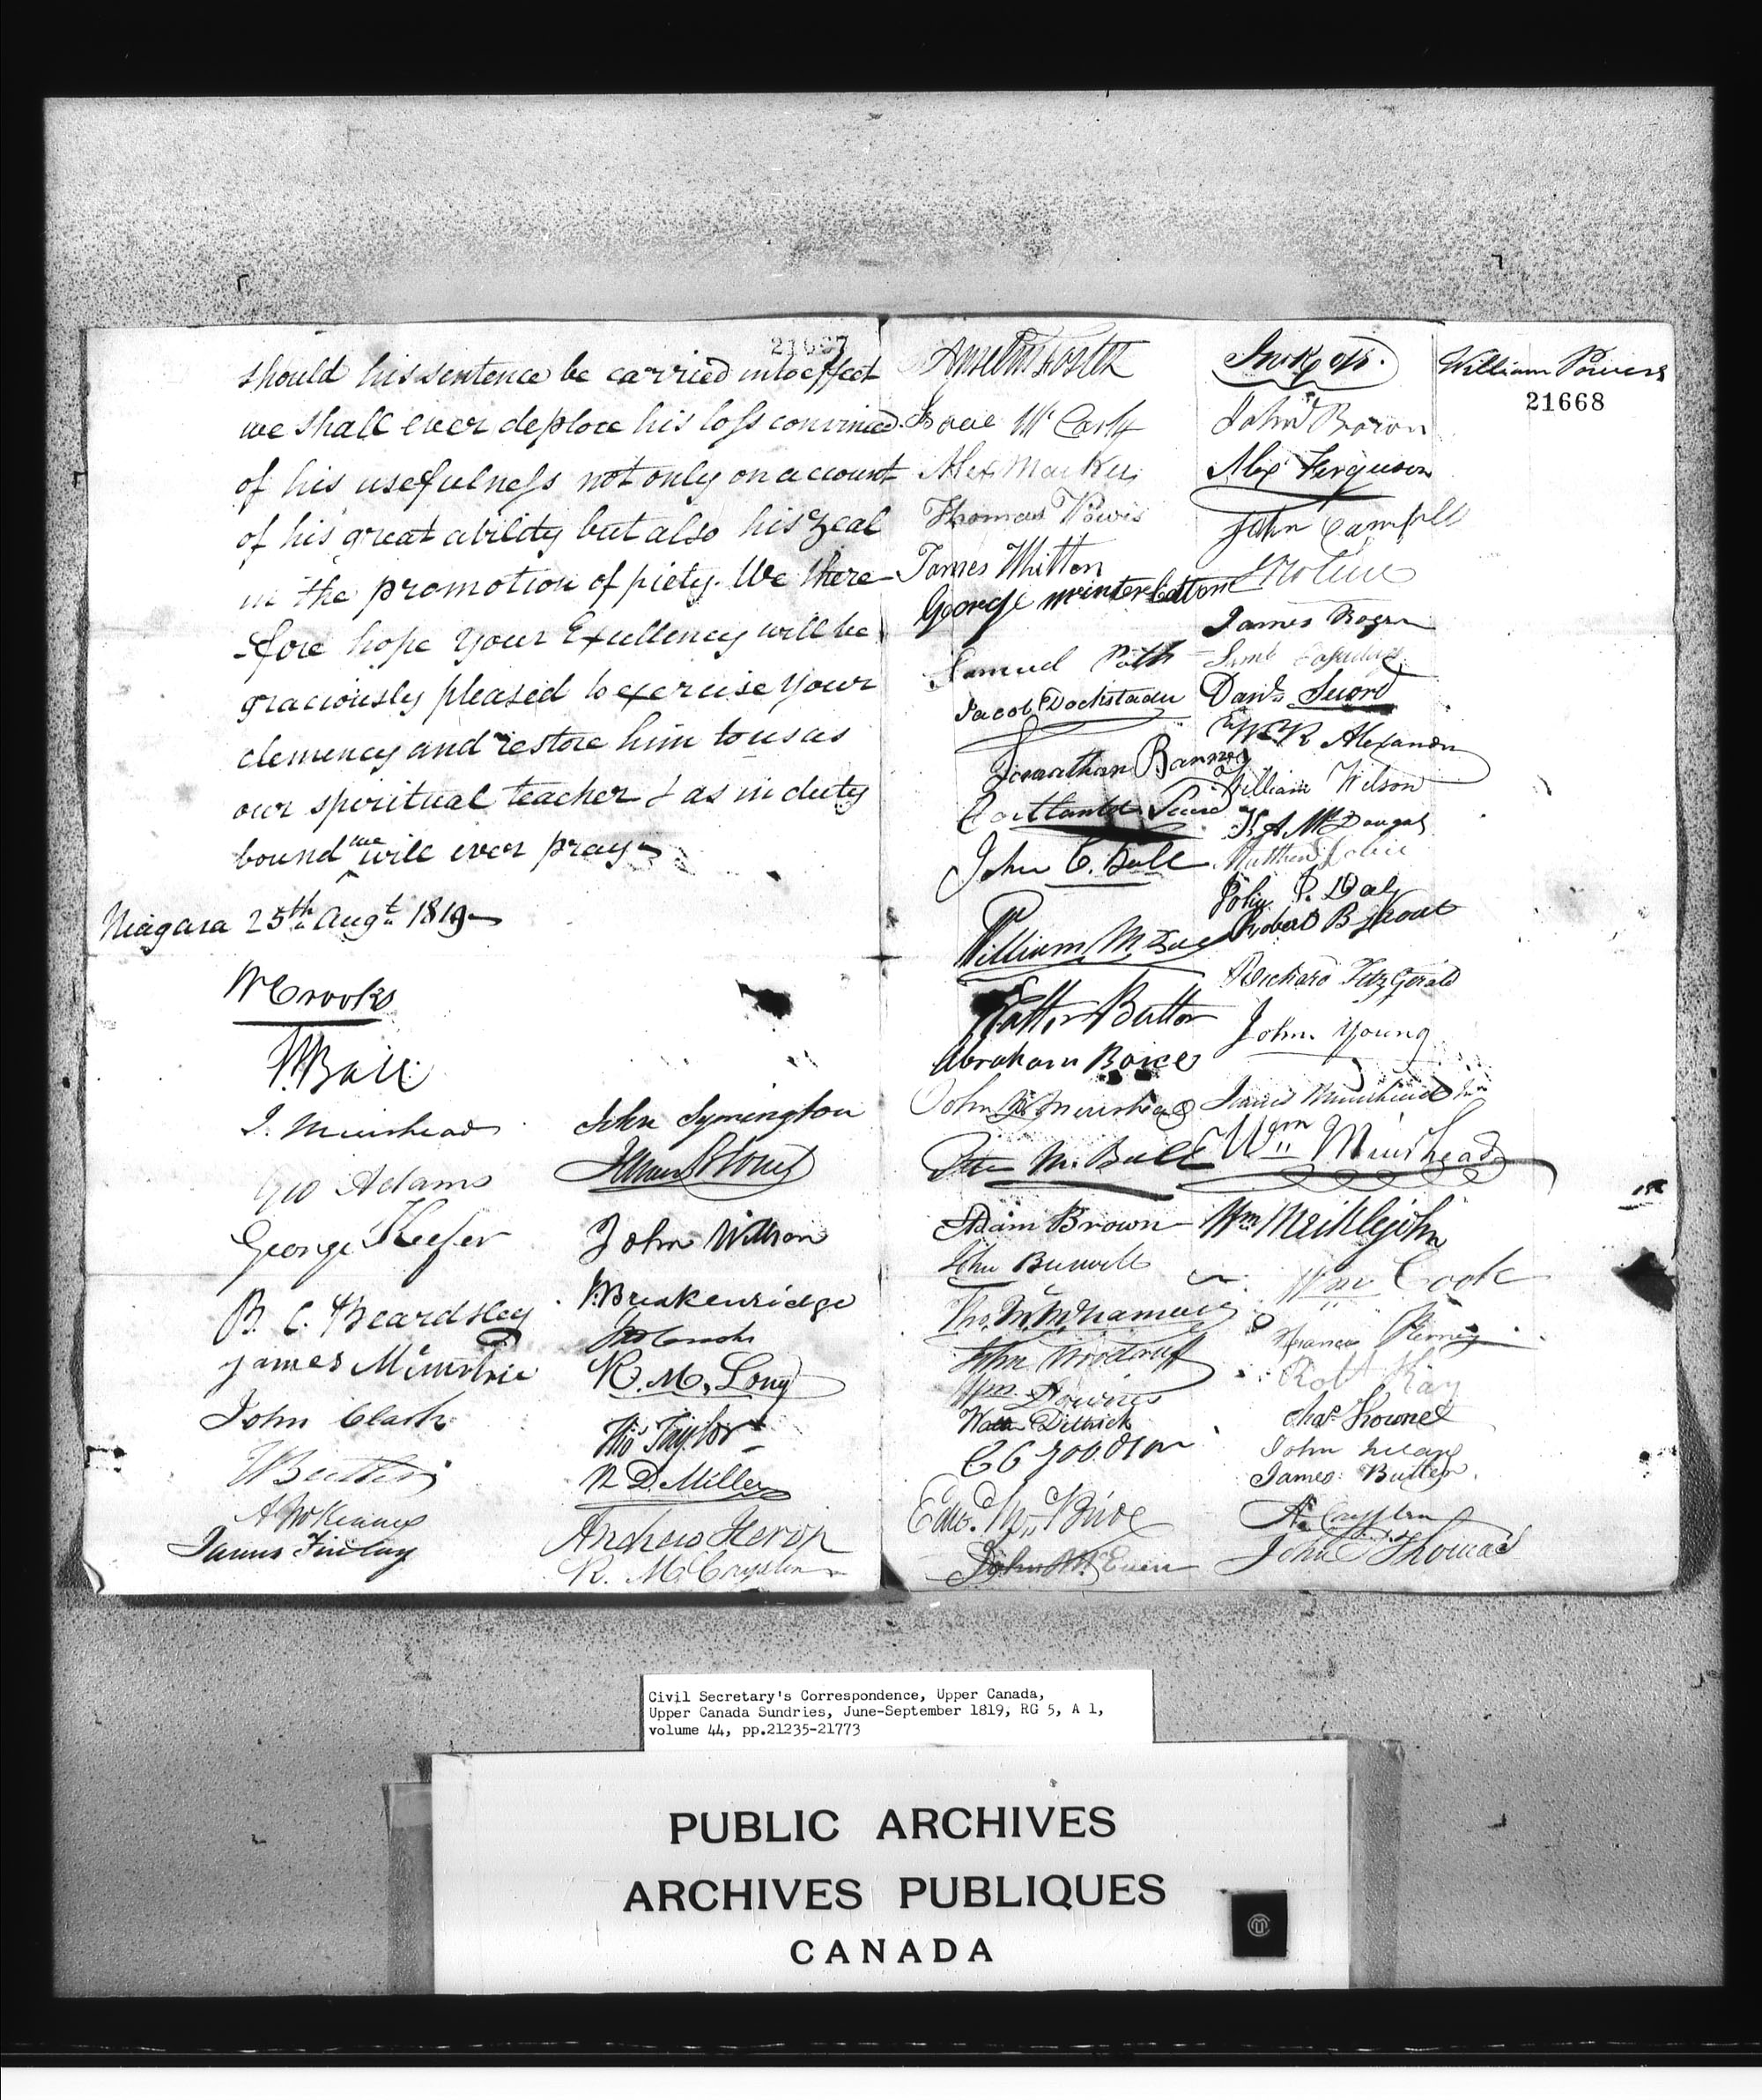 21667
should his sentence be carried into effect
we shall ever deplore his loss convinced
of his usefulness not only on account
of his great ability but also his zeal
in the promotion of piety. We there-
-fore hope Your Excellency will be
graciously pleased to exercise Your
clemency and restore him to us as
our spiritual teacher & as in duty
bound we will ever pray
Niagara 25th Augt 1819
W Crooks
Ball
J. Muirhead
Geo Adams
George Keefer
B. C. Beardsley
James
John Clark
Butler
A McKenney
James Finlay
John Symington
John Willson
Breakenridge
R. M. Long
Thos Taylor
R D. Miller
Andrew Heron
R. M. Crysler
Anselm Foster
McCarty
Alex
Thomas Powis
James Whitton
George Winterbottom
Samuel
Jacob Dockstader
Jonathan
Cortlandt Secord
John C. Ball
William M. Ball
Butler
Abraham Boice
John Muirhead
Peter M. Ball
Adam Brown
John Burwell
Thos.
John Woodruff
Wm.
Walter Dittrick
Edw. McBride
John McEwen
John Brown
Alex Ferguson
John Campbell
James Roger
Danl. Secord
W R Alexander
William Wilson
McDougal
Matthew
John P.
Robert B
Richard FitzGerald
John Young
James Muirhead Jnr
Wm Muirhead
Wm Meiklejohn
Wm Cook
Robt Kay
Chas
John
James Butler
John Thomas
William Powers
21668
Civil Secretary's Correspondence, Upper Canada,
Upper Canada Sundries, June-September 1819, RG 5, A 1,
volume 44, pp.21235-21773
PUBLIC ARCHIVES
ARCHIVES PUBLIQUES
CANADA